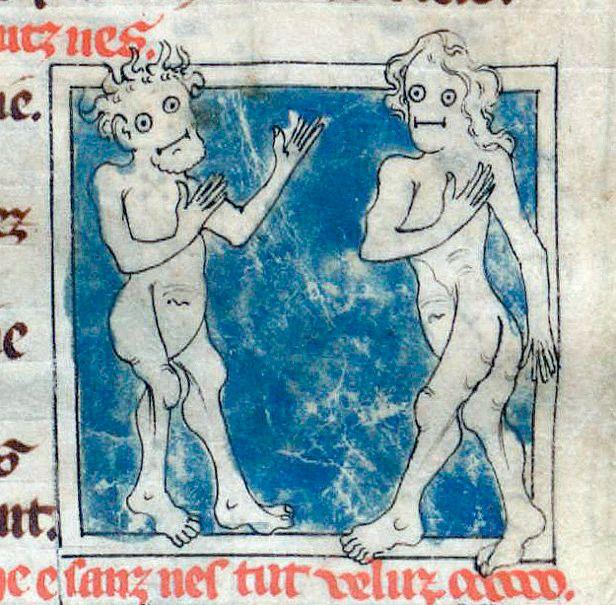 utz nes.
ez
e
ut.
he e sanz nes tut veluz